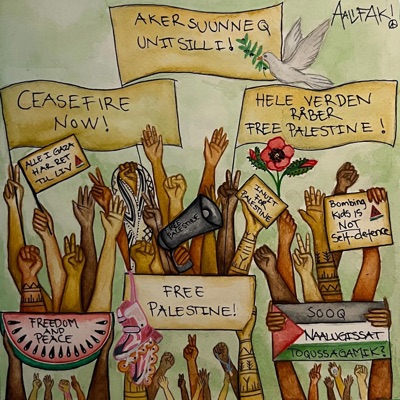 AKERSUUNNEQ
UNITSILLI!
AALUFAK!
CEASEFIRE
NOW!
HELE VERDEN
RÅBER
FREE PALESTINE!
ALLE I GAZA
HAR RET
TIL LIV
FREE
PALESTINE
INUIT
FOR
PALESTINE
Bombing
Kids IS
NOT
Self-defence
FREE
PALESTINE!
FREEDOM
AND
PEACE
SOOQ
NAALUGISSAT
TOQUSSAGAMIK?